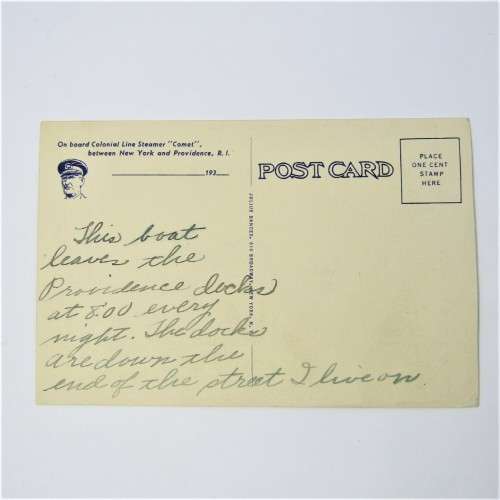 On board Colonial Line Steamer "Comet",
between New York and Providence, R. I.
193
POST CARD
PLACE
ONE CENT
STAMP
HERE
This boat
leaves the
Providence docks
at 8:00 every
night. The docks
are down the
end of the street I live on